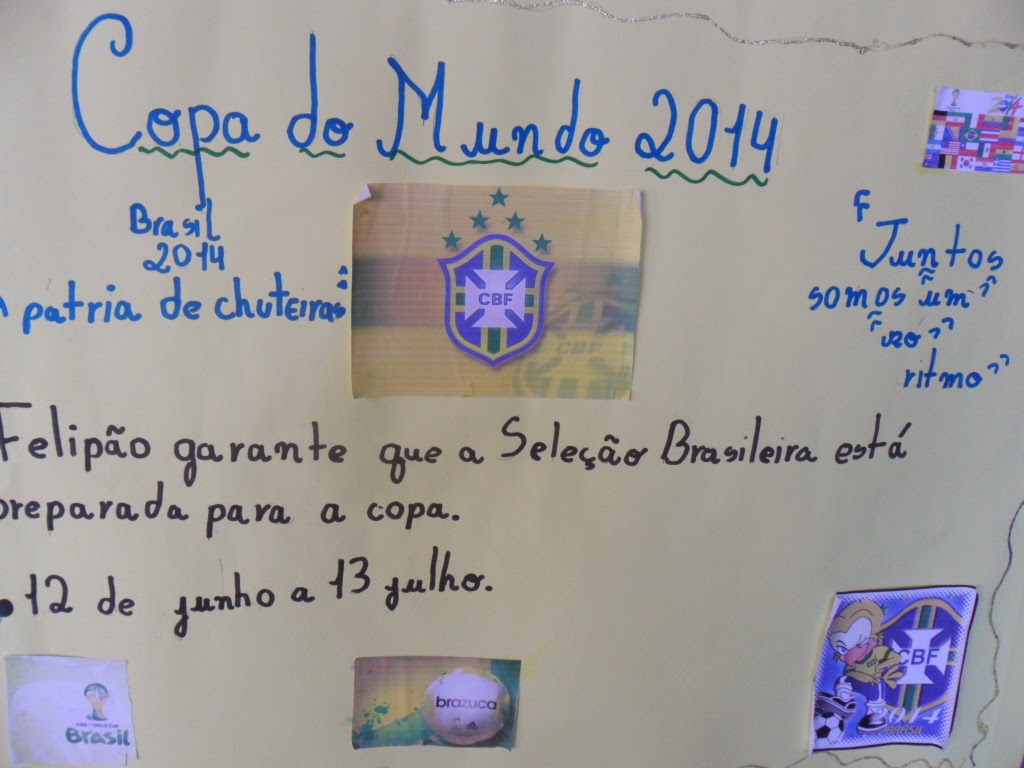 Copa do Mundo 2014
Brasil
2014
patria de chuteiras
CBF
CBF
F
Juntos
somos um
só
ritmo
Felipão garante que a Seleção Brasileira está
preparada para a copa.
12 de junho a 13 julho.
FIFA WORLD CUP
Brasil
brazuca
adidas
CBF
2014
BRASIL